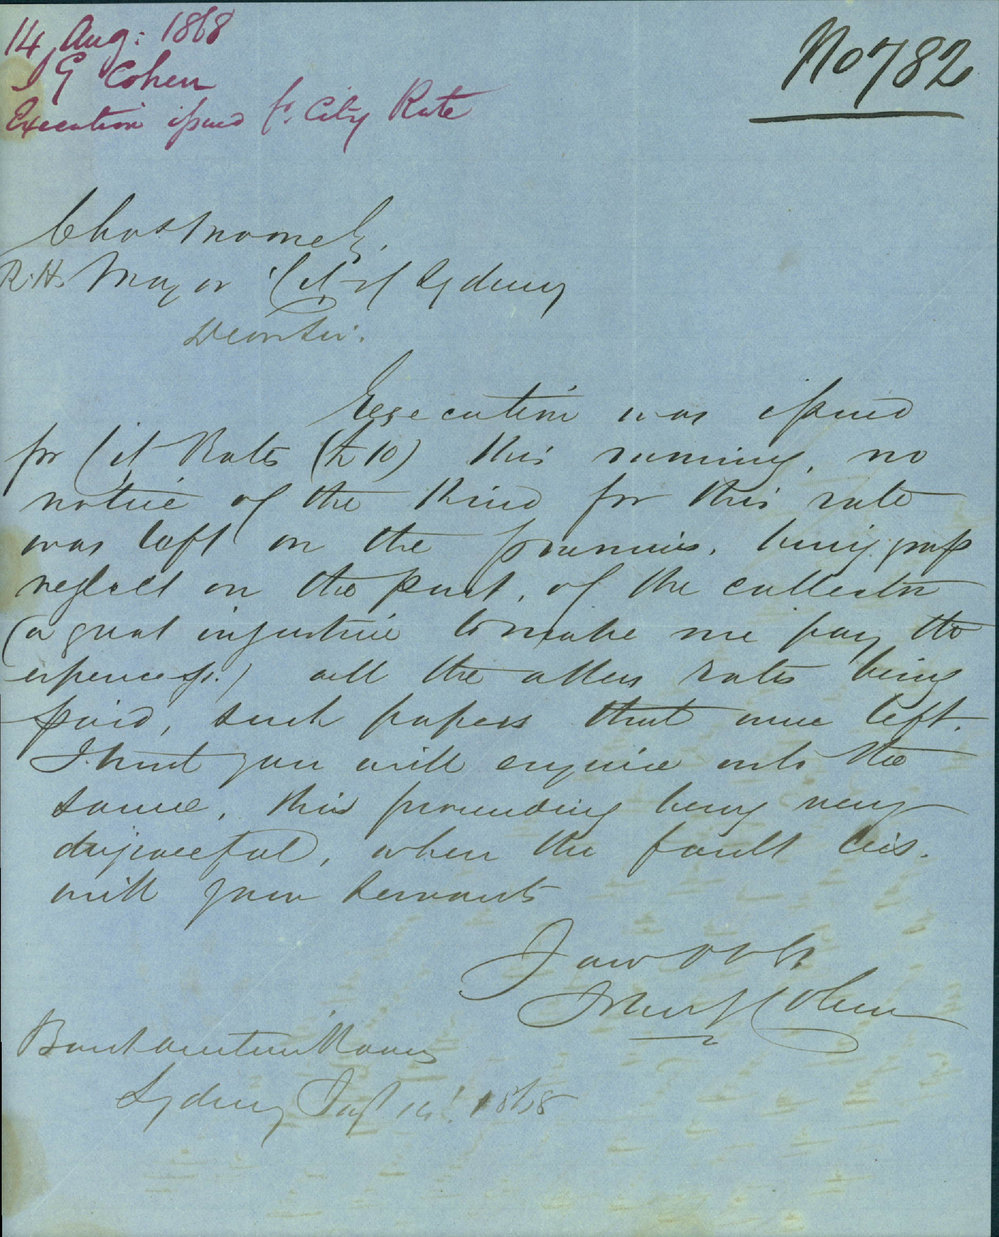 14 Aug: 1868
I G Cohen
Execution issued fr. City Rate
No 782
Chas Moore Esq.
R. H. Mayor City of Sydney
Dear Sir.
Execution was issued
for Cit Rates this morning, no
notice of the kind for this rate
was left on the premises, being gross
neglect on the part, of the collector
(a great injustice to make me pay the
expences.) all the other rates being
paid, such papers that were left.
I trust you will enquire into the
same, this proceeding being very
disgraceful, when the fault lies.
with your servants
I am
Cohen
Bank Auction Rooms
Sydney 14t. 1868